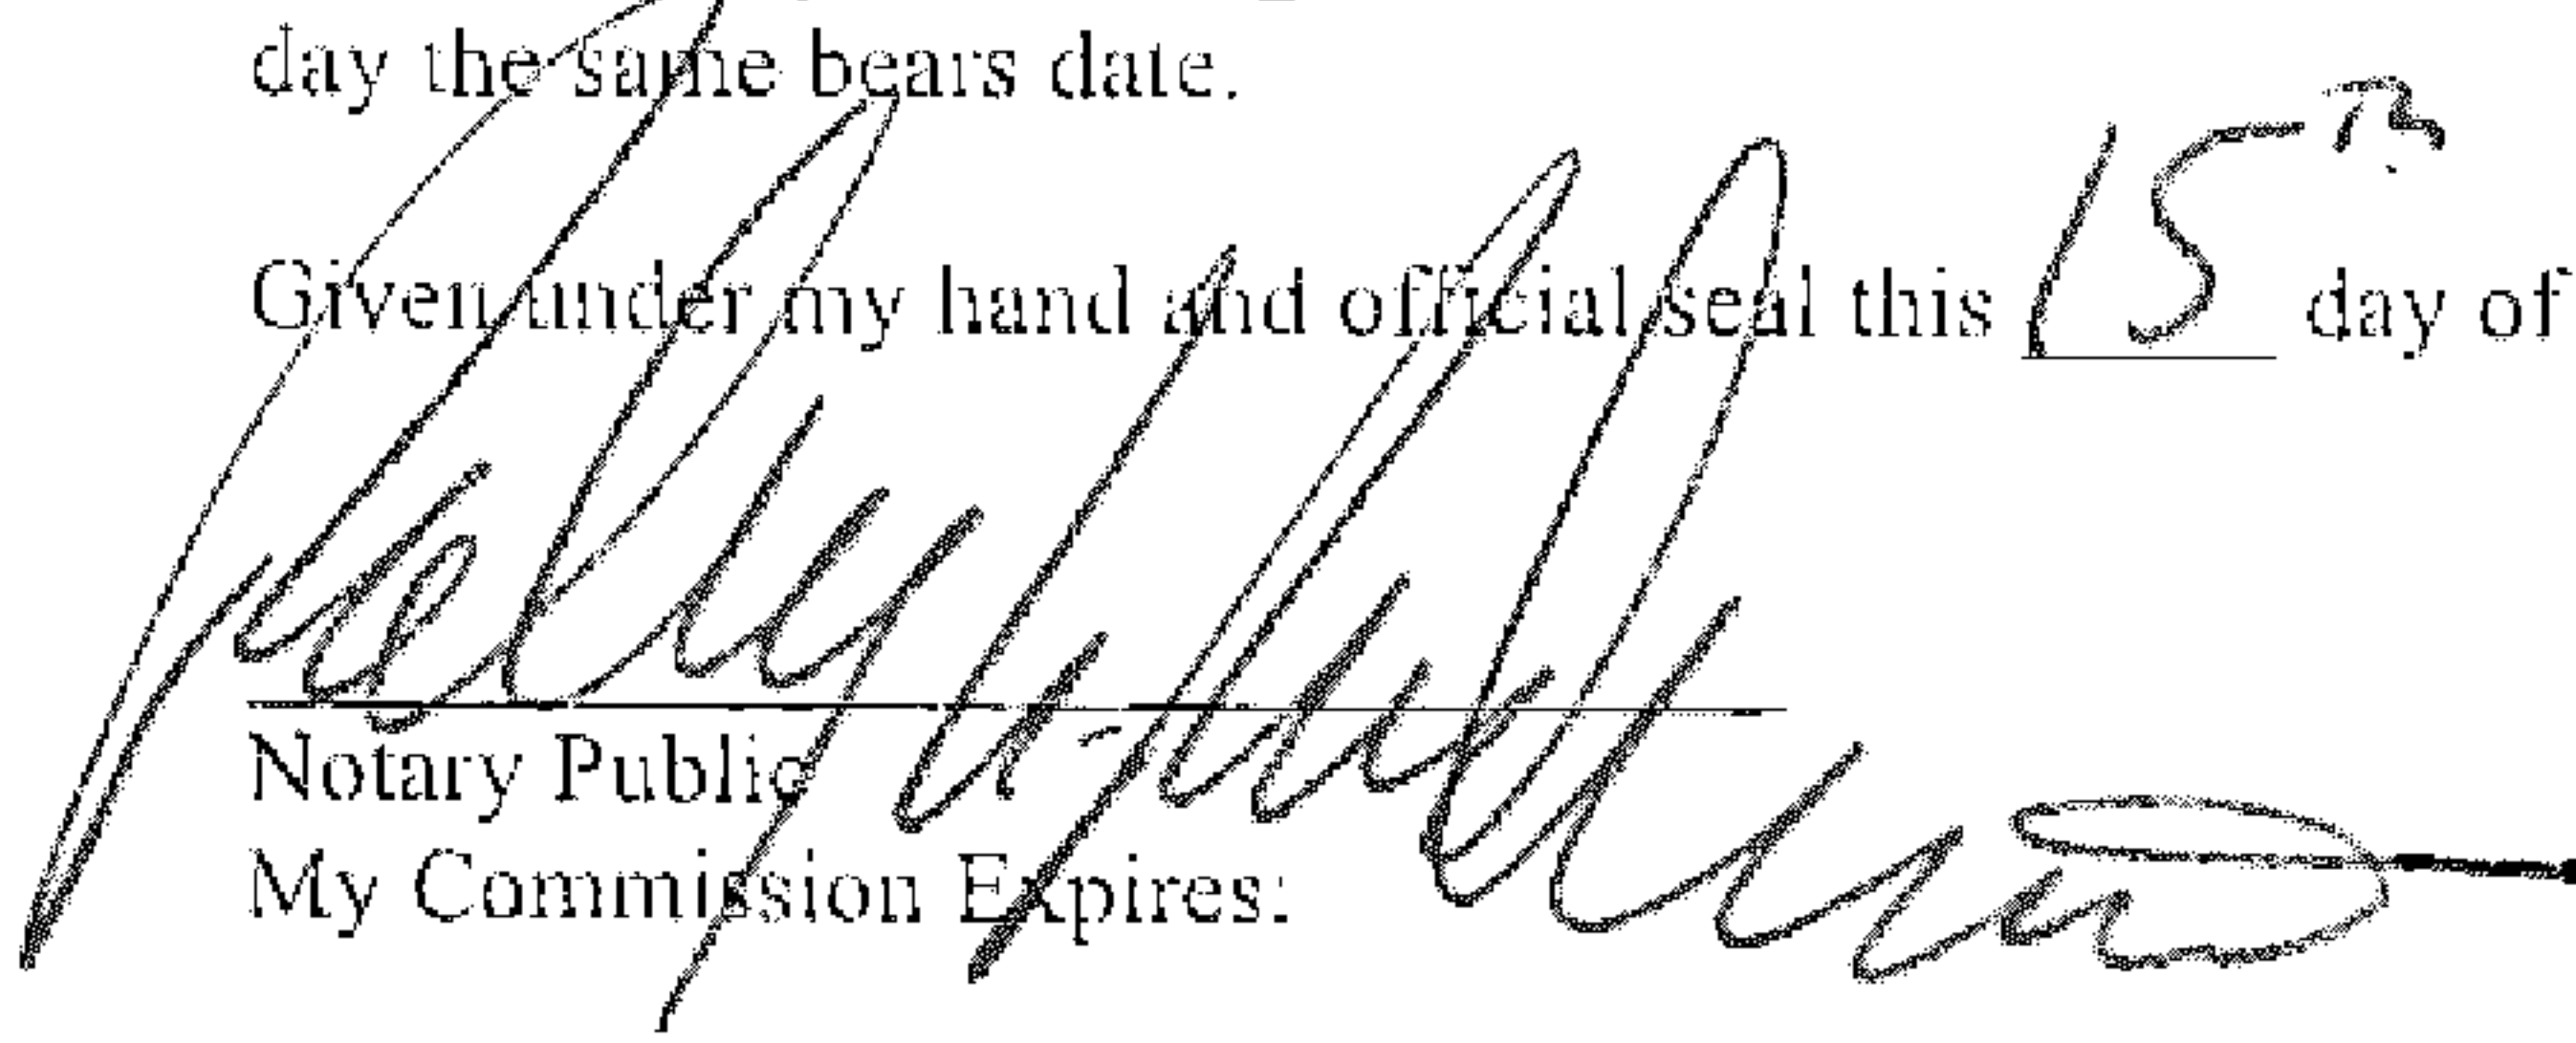 day the same bears date.
Given under my hand and official seal this 15th day of
Notary Public
My Commission Expires: